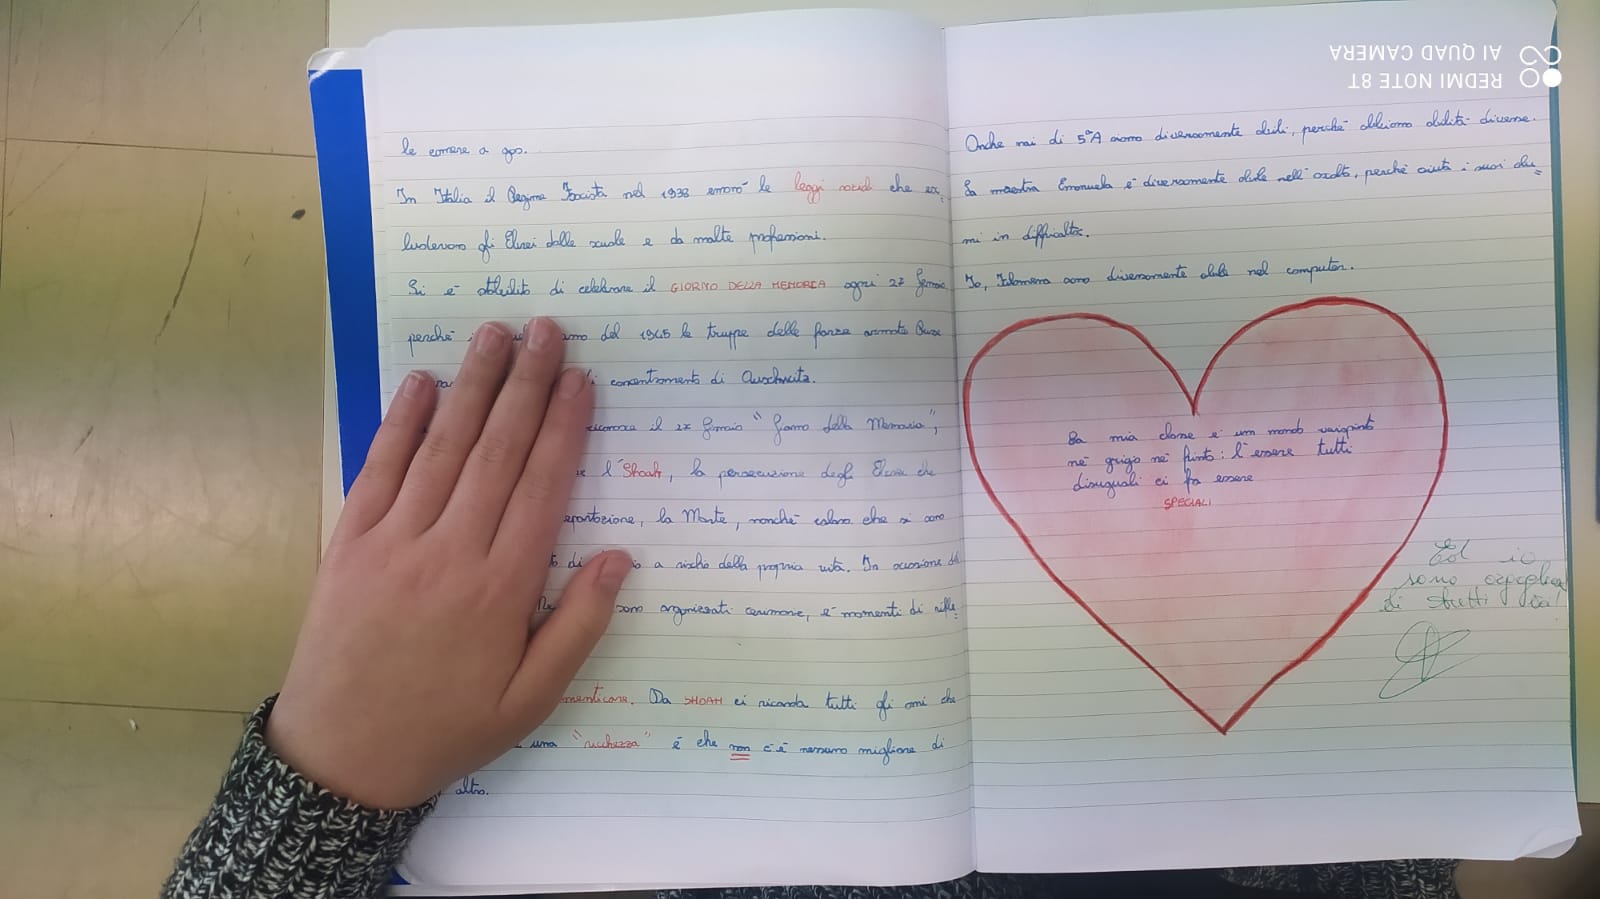 le camere a gas.
In Italia il Regime Fascista nel 1938 emanò le leggi razziali che esc
ludevano gli Ebrei dalle scuole e da molte professioni.
Si è stabilito di celebrare il GIORNO DELLA MEMORIA ogni 27 Gennaio
perché del 1945 le truppe delle forze armate Russe
di concentramento di Auschwitz.
riconosce il 27 Gennaio "Giorno della Memoria",
l'Shoah, la persecuzione degli Ebrei che
deportazione, la Morte, nonché coloro che si sono
a rischio della propria vita. In occasione del
sono organizzati cerimonie, e momenti di rifle
menticare. Da SHOAH ci ricorda tutti gli anni che
una "ricchezza" è che non c'è nessuno migliore di
altro.
Anche noi di 5ªA siamo diversamente abili, perché abbiamo abilità diverse.
La maestra Emanuela è diversamente abile nell'ascolto, perché aiuta i suoi alu
nni in difficoltà.
Io, Filomena sono diversamente abile nel computer.
La mia classe è un mondo variopinto
né grigio né finto: l'essere tutti
disuguali ci fa essere
SPECIALI
Ed io
sono orgoglio
di tutti sa!
REDMI NOTE 8T
AI QUAD CAMERA